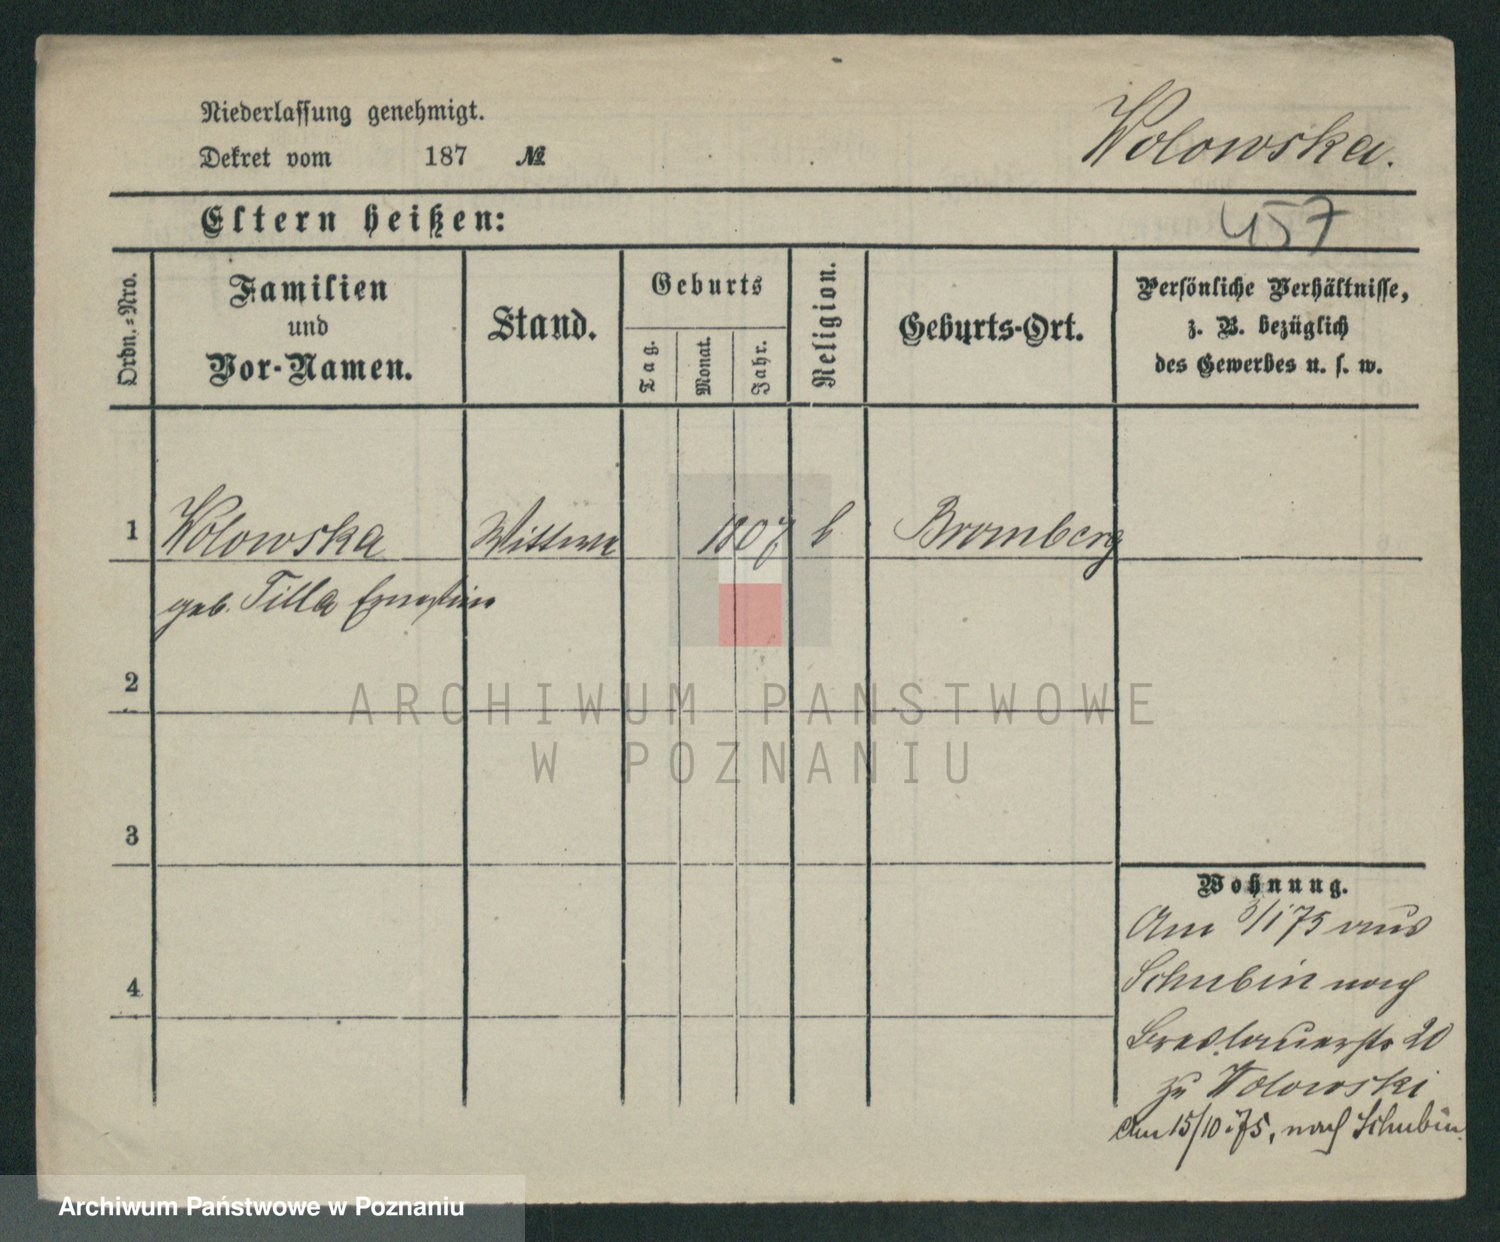 Niederlassung genehmigt.
Dekret vom 187 №
Wolowska.
Eltern heißen:
457
Ordn.=Nro.
Familien
und
Vor-Namen.
Stand.
Geburts
Tag.
Monat.
Jahr.
Religion.
Geburts-Ort.
Persönliche Verhältnisse,
z. B. bezüglich
des Gewerbes u. s. w.
1 Wolowska Wittwe 1807 Bromberg
geb. Tilla Ernestine
2
ARCHIWUM PAŃSTWOWE
W POZNANIU
3
Wohnung.
Am /1 75 aus
Schubin nach
Breslauerstr 20
zu Wolowski
Am 15/10 75, nach Schubin.
4
Archiwum Państwowe w Poznaniu